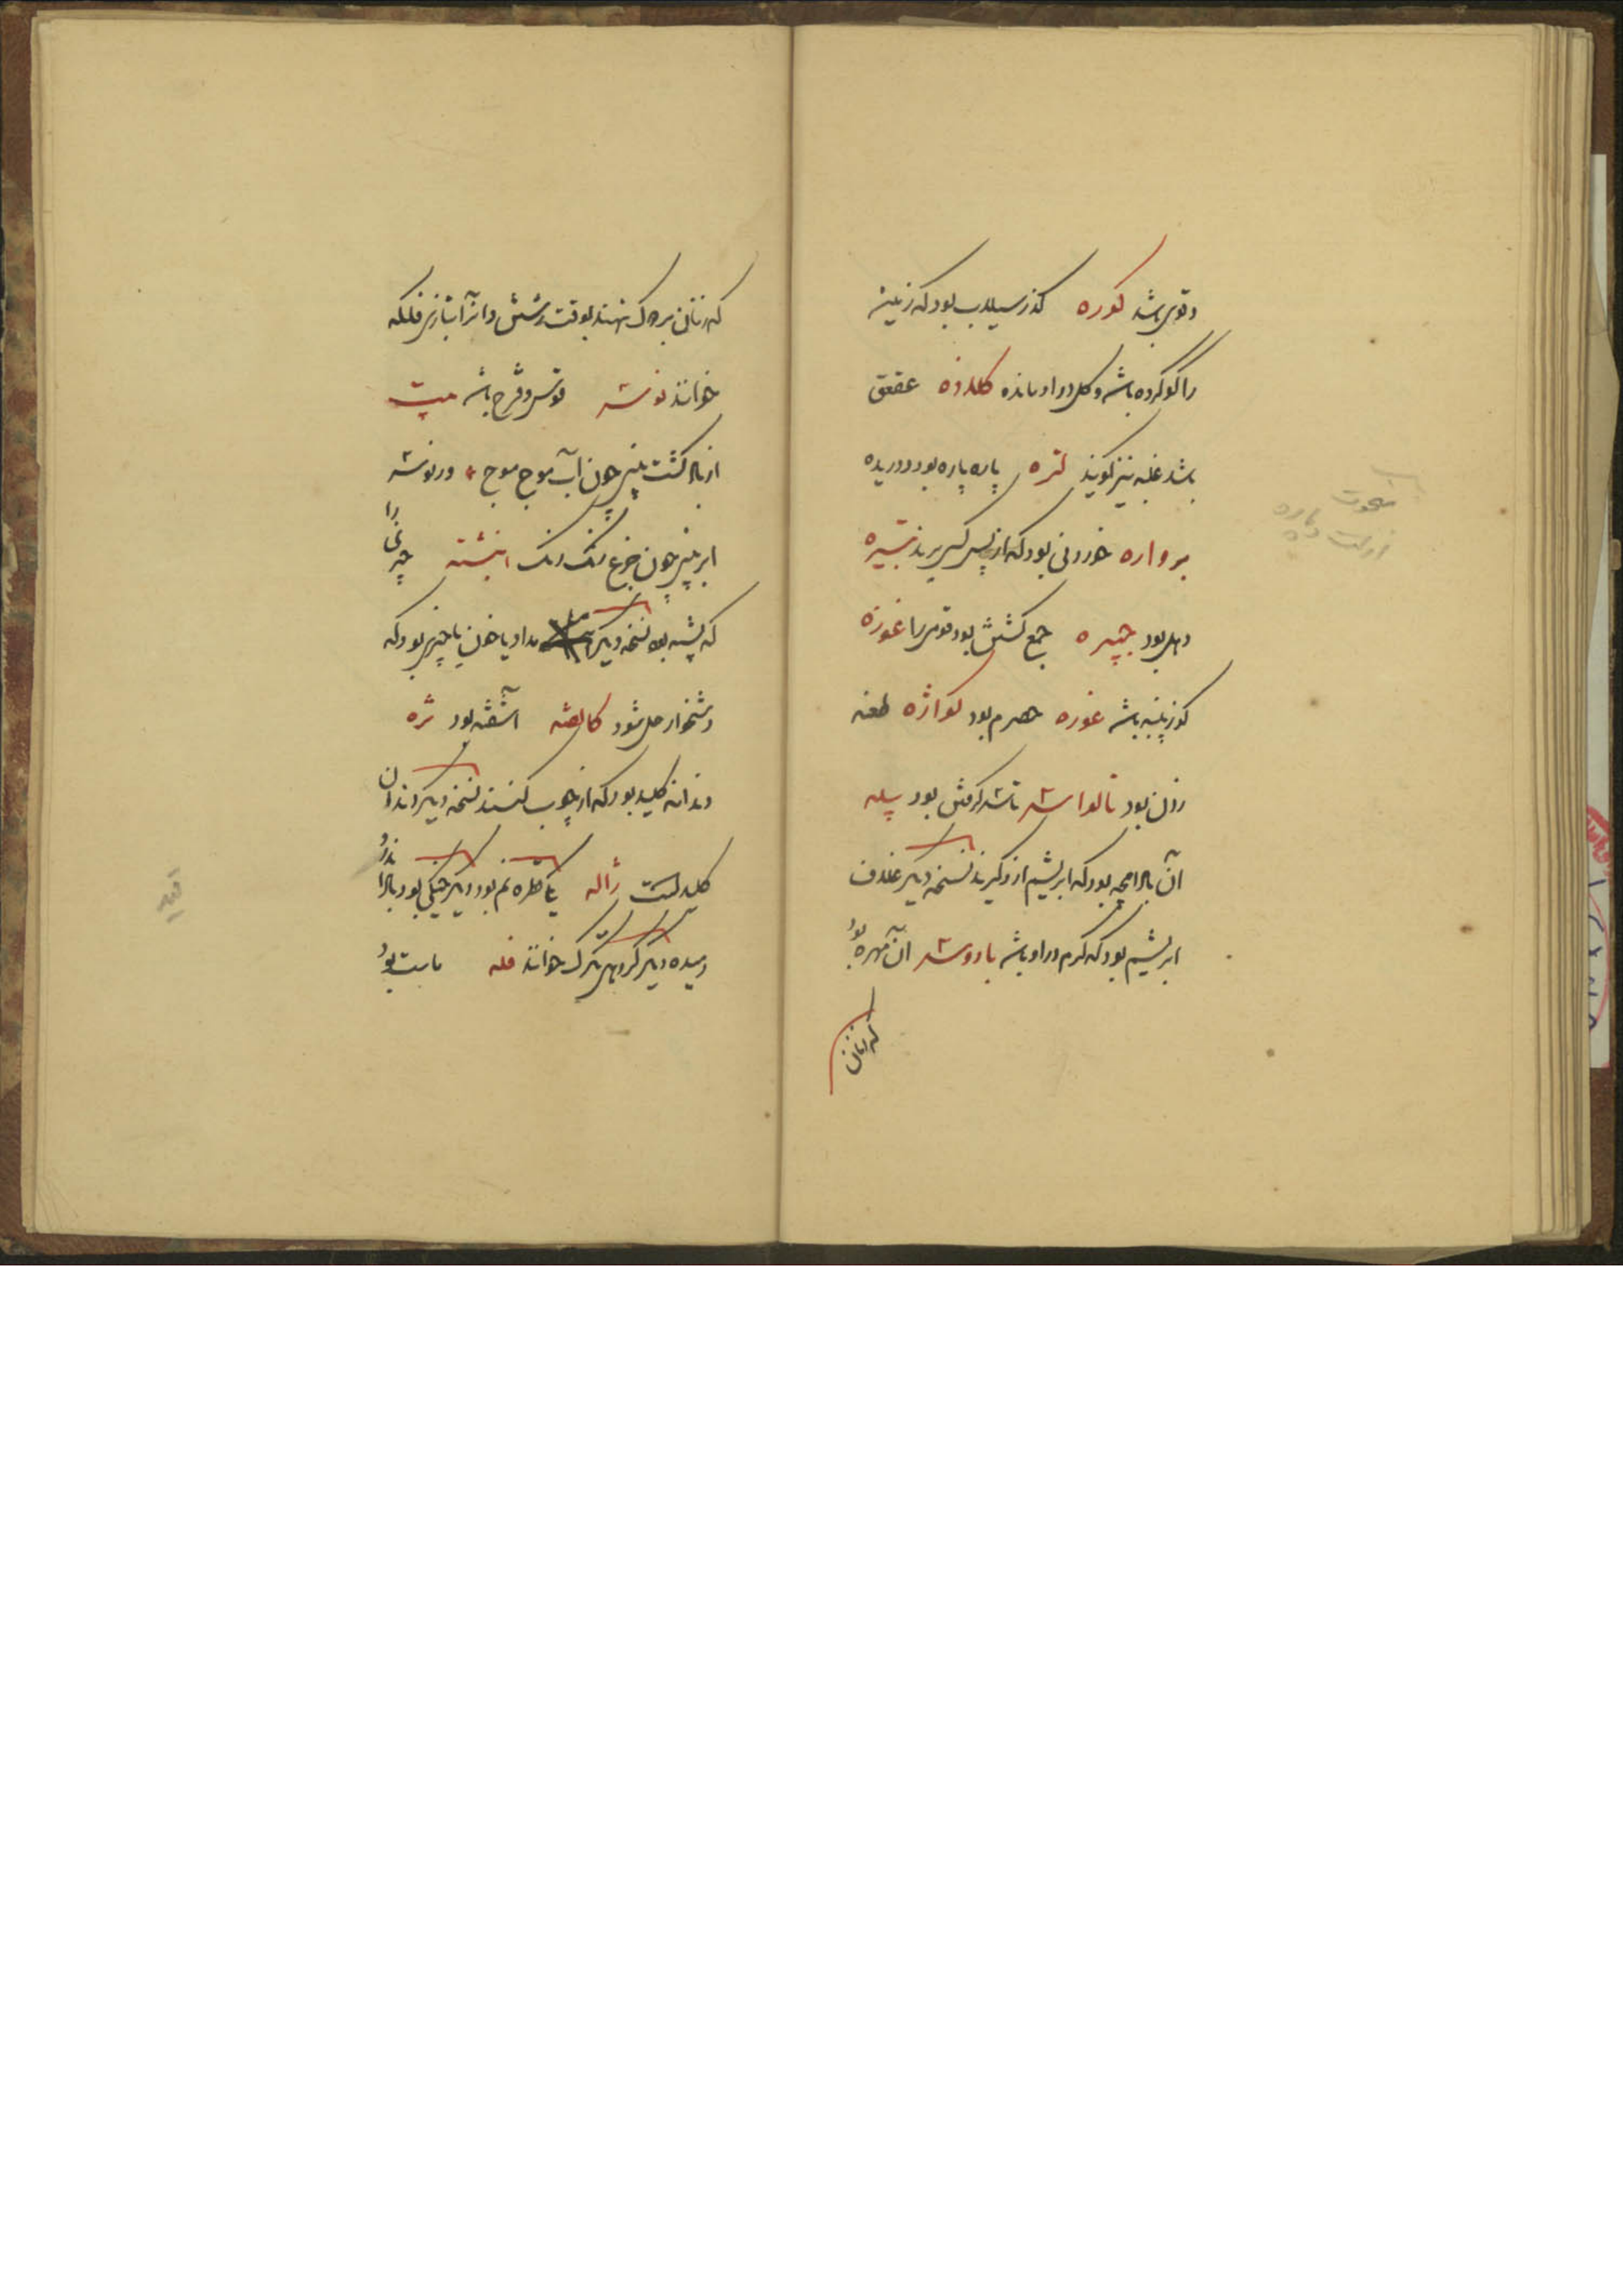 وقوی باشد کوره گذر سیلاب بود که زمین
را گو کرده باشد و گل در او مانده کلاژه عقعق
باشد غلبه نیز گویند لتره پاره پاره بود و دریده
برواره خوردنی بود که از پس کسی برند تبیره
دهل بود جپیره جمع گشتن بود قومی را غوزه
گوز پنبه باشد غوره حصرم بود لواژه طعنه
زدن بود تالواسه تاسه گرفتن بود پیله
آن بادامچه بود که ابریشم ازو گیرند نسخه دیگر غلاف
ابریشم بود که کرم در او باشد بادریسه آن مهره بود
که زنان
که زنان بر دوک نهند بوقت رشتن و آنرا بتازی فلکه
خوانند نوسه قوس و قزح باشد بیت
از باد گشت بینی چون آب موج موج وز نوسه
ابر بینی چون جزع رنگ رنگ انبسته چیزی را
که بسته بود نسخه دیگر مداد یا خون یا چیزی بود که
دشخوار حل شود کالفته آشفته بود تژه
دندانه کلید بود که از چوب کنند نسخه دیگر دندان
کلید است ژاله یک قطره نم بود دیگر خیکی بود باد اندر
دمیده دیگر تگرگ خوانند فله ماست بود